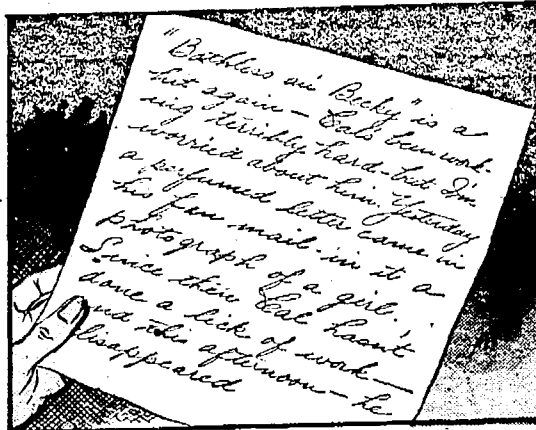 "Bathless an' Becky" is a
hit again — Cal's been work-
ing terribly hard - but I'm
worried about him. Yesterday
a perfumed letter came in
his fan mail - in it a
photograph of a girl.
Since then Cal hasn't
done a lick of work —
and this afternoon — he
disappeared